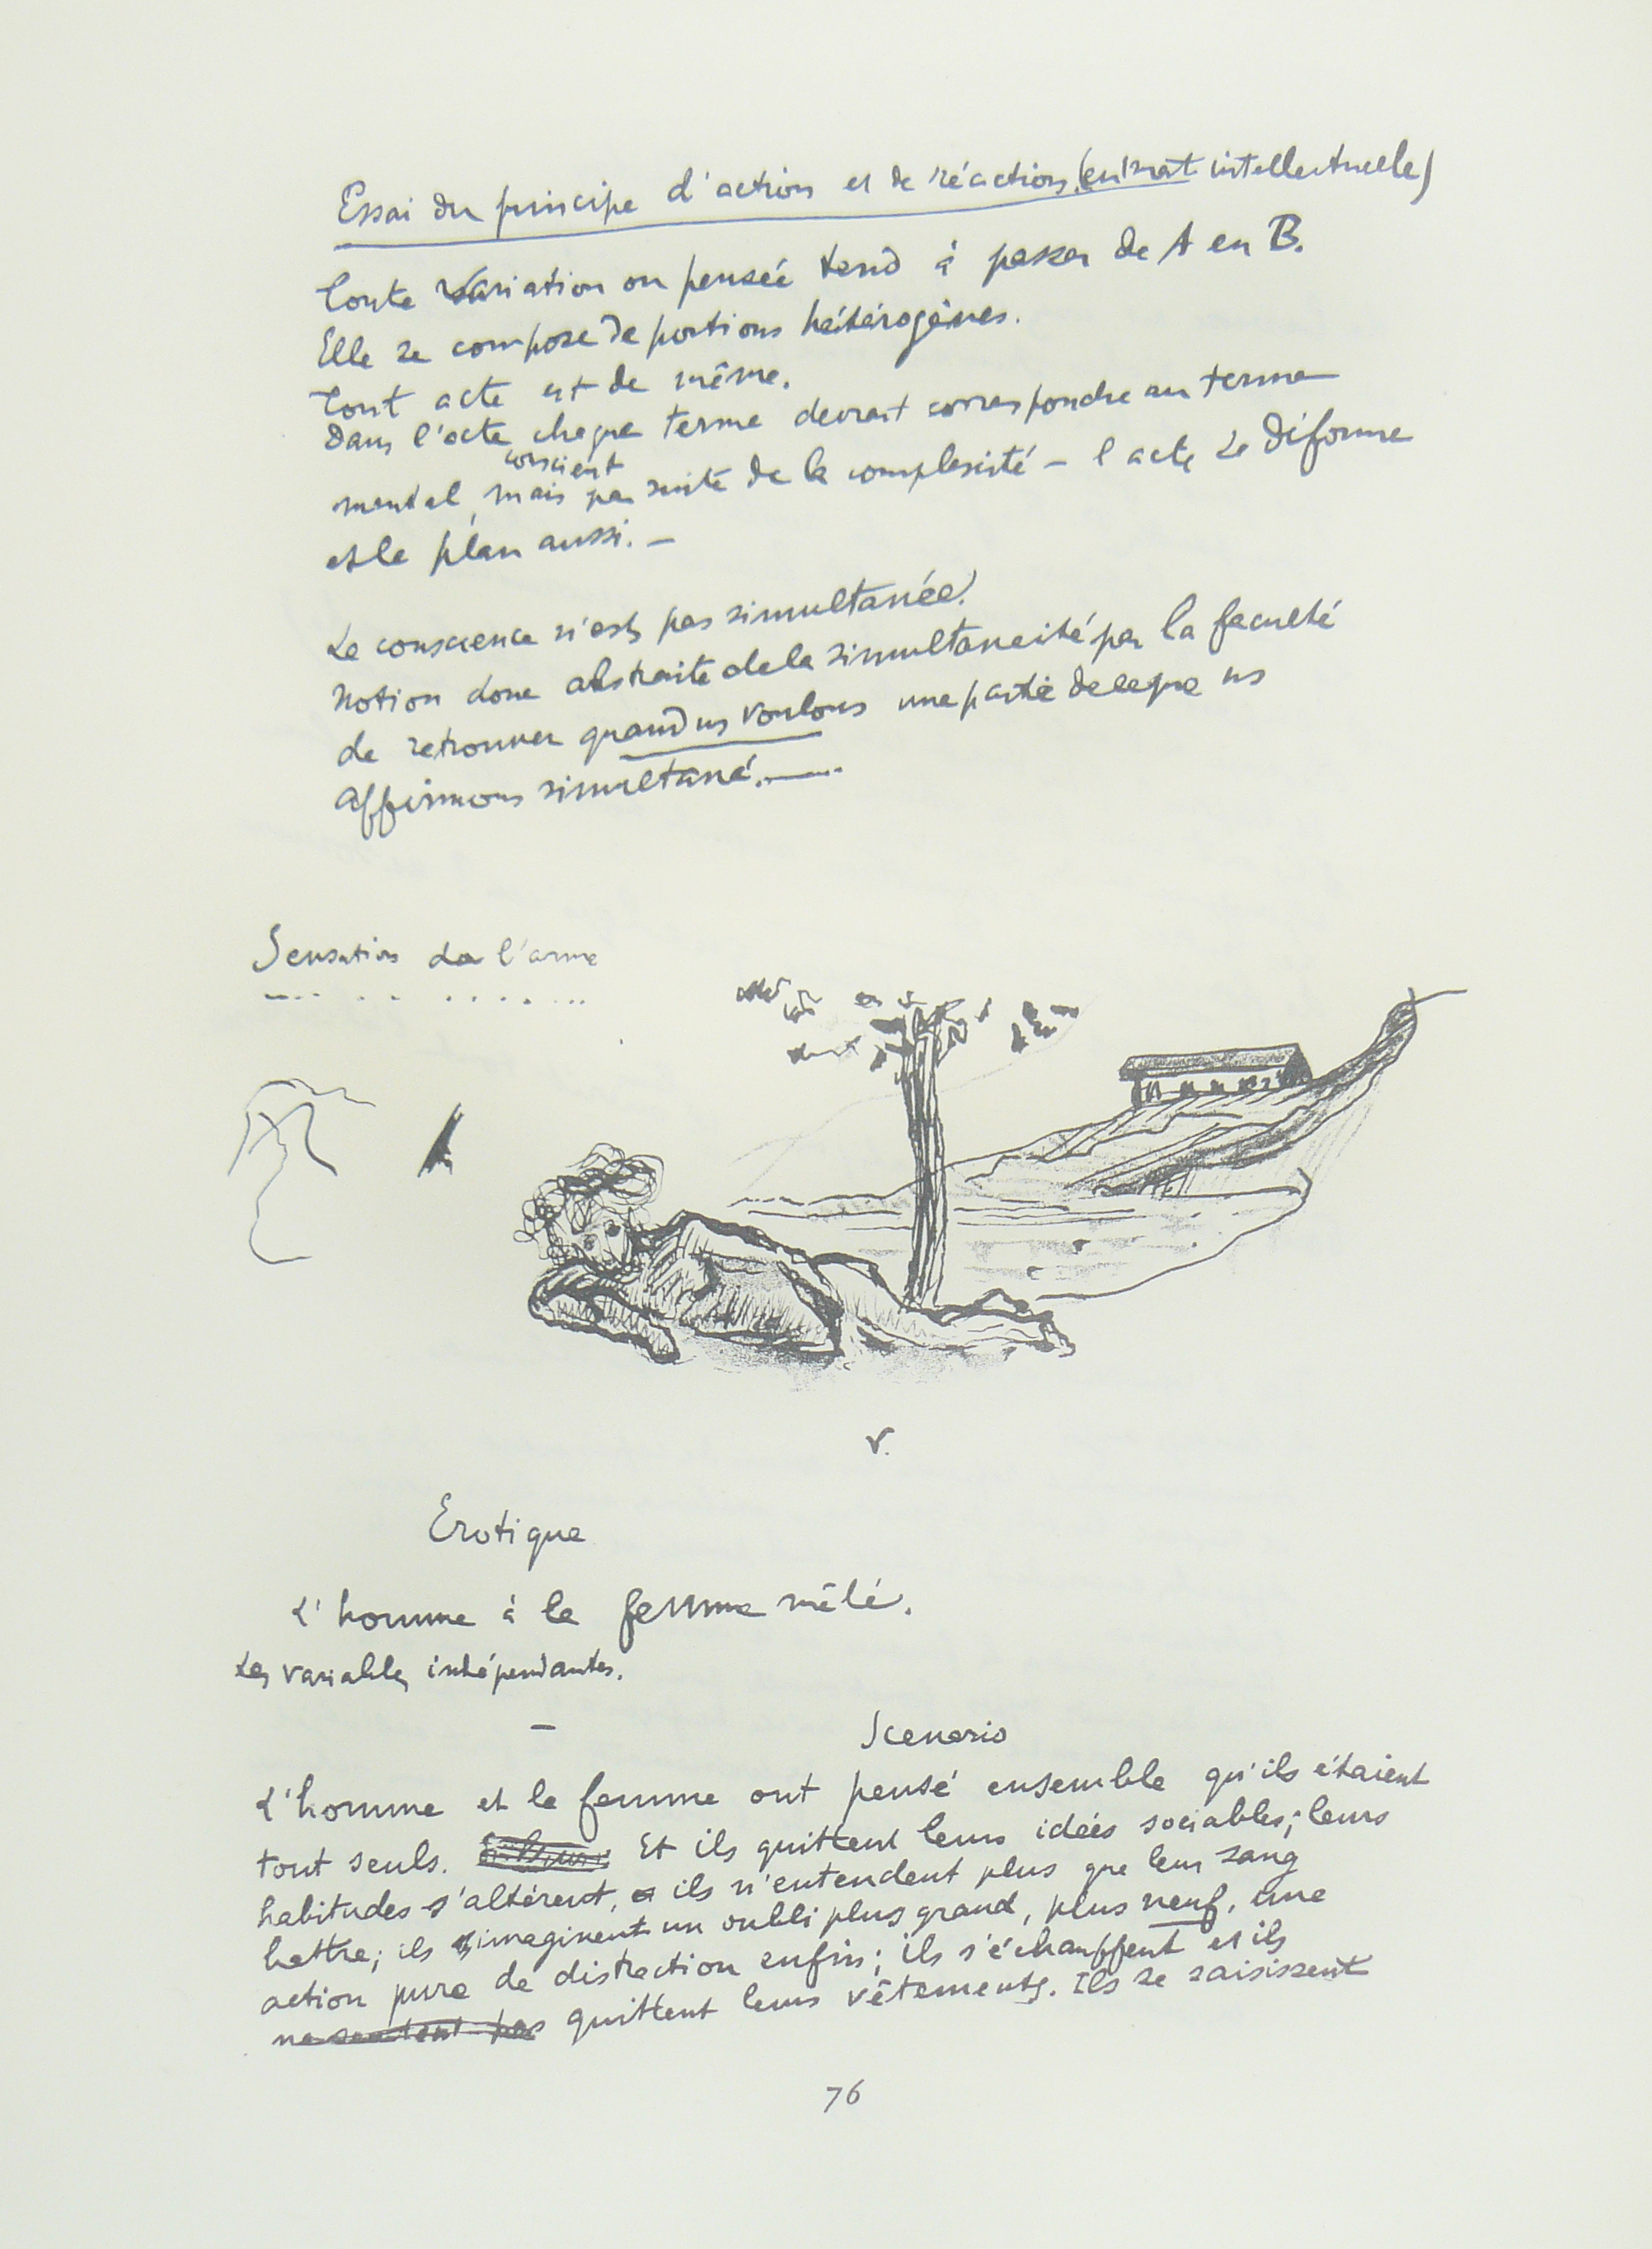 Essai du principe d'action et de réaction (en mat intellectuelle)
Toute variation ou pensée tend à passer de A en B.
Elle se compose de portions hétérogènes.
Tout acte est de même.
Dans l'acte chaque terme devrait correspondre au terme
conscient
mental, mais par suite de la complexité – l'acte se déforme
et le plan aussi. –
La conscience n'est pas simultanée.
Notion donc abstraite de la simultanéité par la faculté
de retrouver quand ns voulons une partie de ce que ns
affirmons simultané. —
Sensation de l'arme
V.
Erotique
L'homme à la femme mêlé.
Les variables indépendantes.
–
Scenario
L'homme et la femme ont pensé ensemble qu'ils étaient
tout seuls. Et ils quittent leurs idées sociables; leurs
habitudes s'altèrent, ils n'entendent plus que leur sang
battre; ils imaginent un oubli plus grand, plus neuf, une
action pure de distraction enfin; ils s'échauffent et ils
ne sentent pas quittent leurs vêtements. Ils se saisissent
76